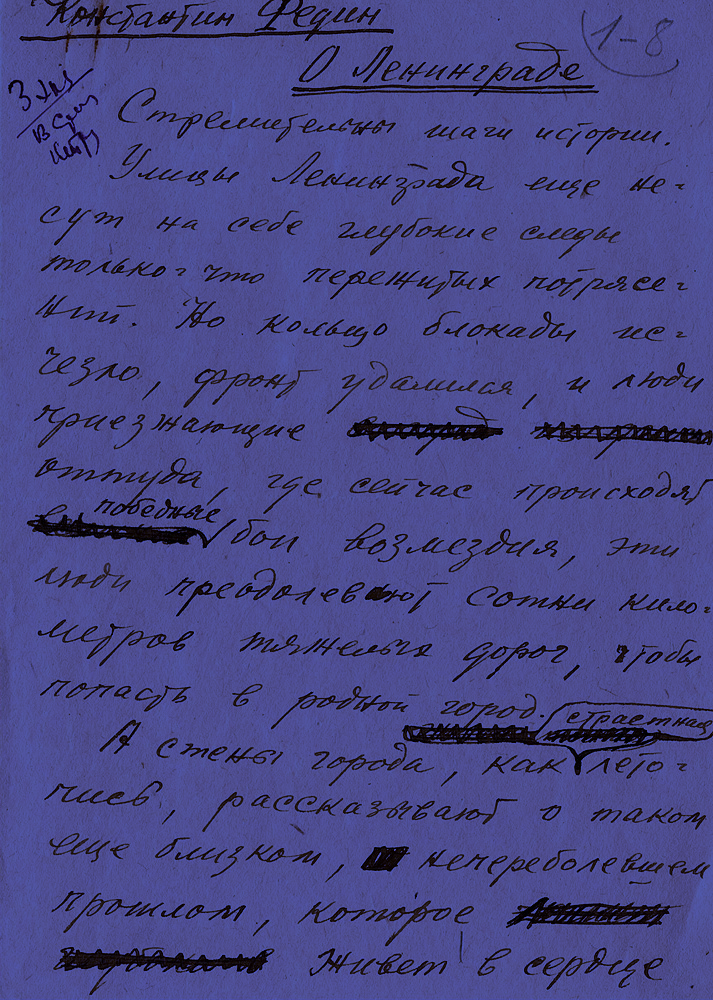 Константин Федин
1-8
О Ленинграде
3 экз
Стремительны шаги истории.
Улицы Ленинграда еще не=
сут на себе глубокие следы
только=что пережитых потрясе=
ний. Но кольцо блокады ис=
чезло, фронт удалился, и люди
приезжающие
оттуда, где сейчас происходят
победные
бои возмездия, эти
люди преодолевают сотни кило=
метров тяжелых дорог, чтобы
попасть в родной город.
страстная
А стены города, как лето=
пись, рассказывают о таком
еще близком, непереболевшем
прошлом, которое
живет в сердце